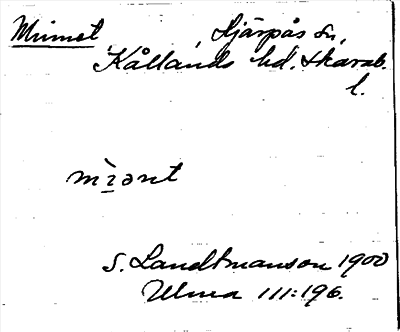 Mimet, Hjärpås sn,
Kållands hd. Skarab.
l.
mìənt
S. Landtmanson 1900
Ulma 111:196.